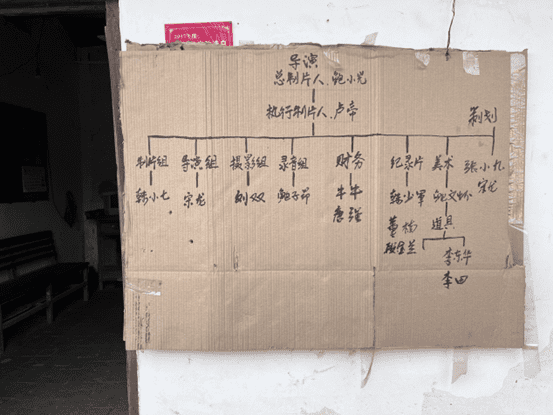 导演
总制片人、鲍小光
执行制片人、卢帝
策划
制片组 导演组 摄影组 录音组 财务 纪录片 美术 张小九
韩小七 宋龙 刘双 鲍子茆 牛牛 韩少军 宋龙
唐瑾 董楠 道具
李东华
李田